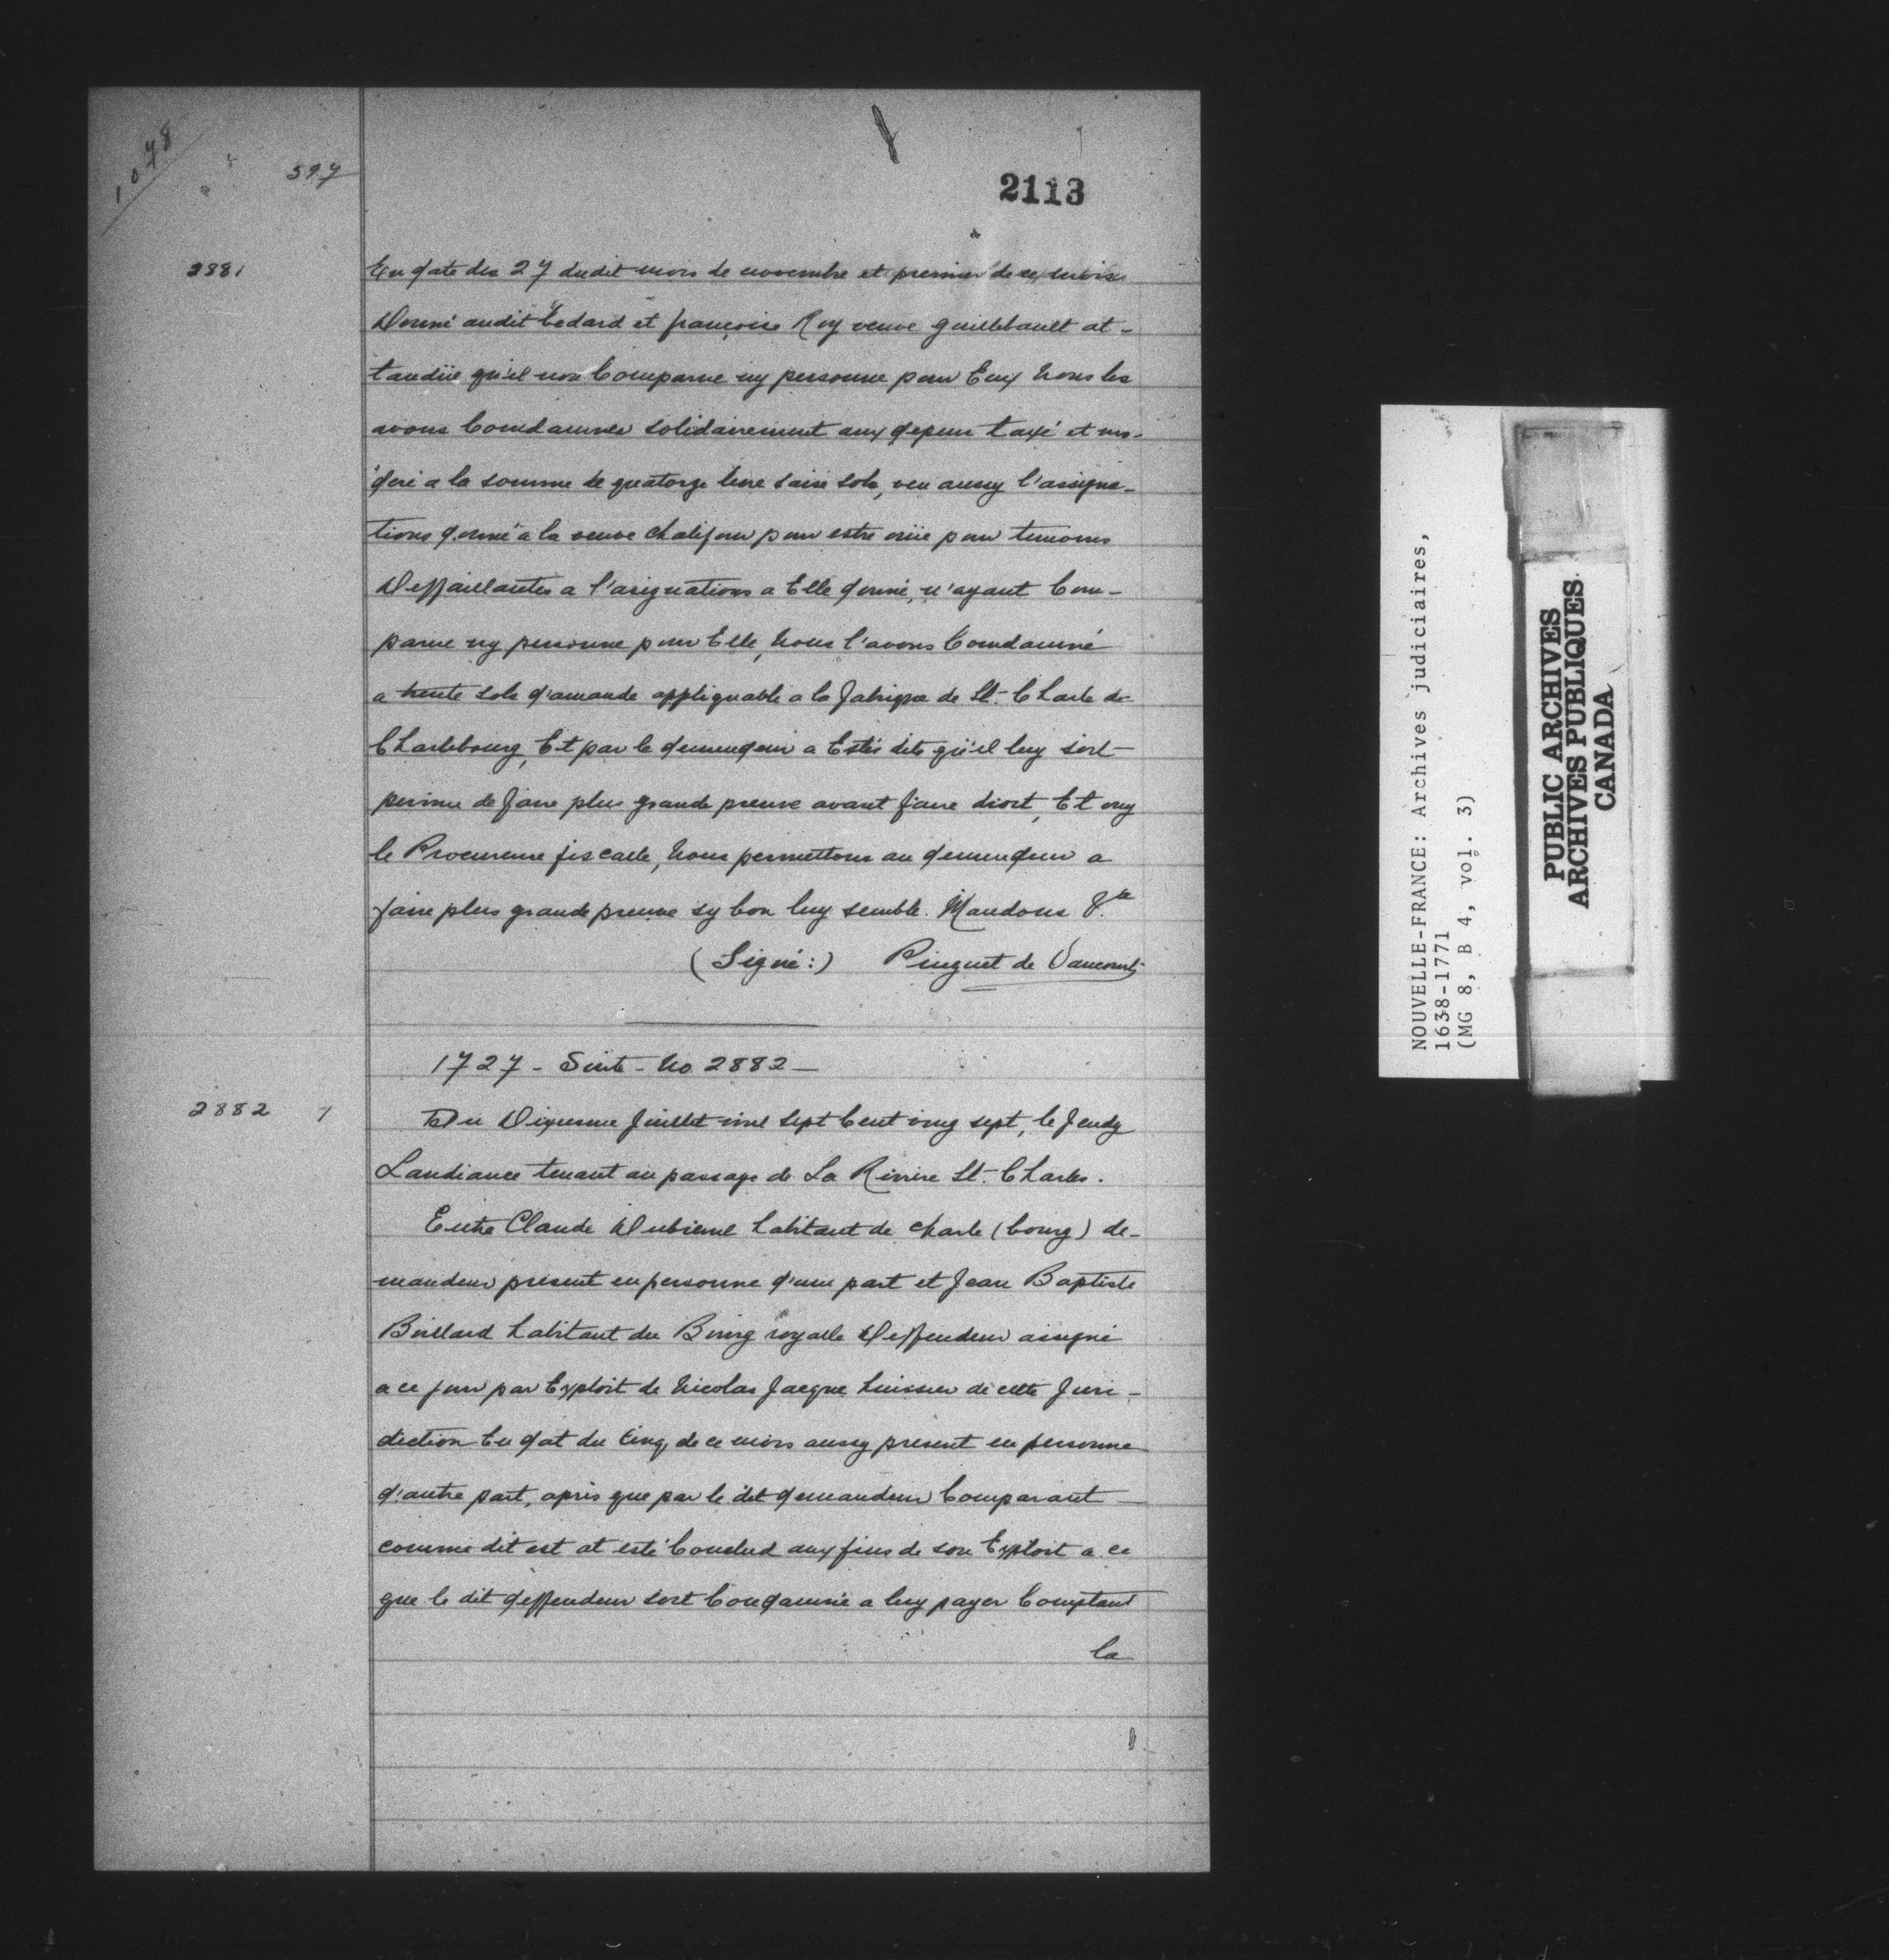 1078
597
2113
2881
En date des 27 dudit mois de novembre et premier de ce mois
Donné audit Bedard et françoise Roy veuve guillebault at-
tandüe qu'il non Comparue ny personne pour Eux Nous les
avons Comdamnés solidairement aux depens taxé et mo-
deré a la somme de quatorze livre saise sols, veu aussy l'assigna-
tions donné a la veuve chalifour pour estre ouie pour temoins
Deffaillantes a l'asignations a Elle donné, n'ayant Com-
parue ny personne pour Elle, Nous l'avons Comdamné
a trente sols d'amande appliquable a la fabrique de St. Charle de
Charlebourg, Et par le demendeur a Estés dits qu'il luy soit
permis de faire plus grande preuve avant faire droit, Et ouy
le Procureure fiscalle, Nous permettons au demendeur a
faire plus grande preuve sy bon luy semble. Mandons &a
(Signé:) Pinguet de Vaucours
1727 - Suite - No. 2882 -
2882 7
Du Dixiesme Juillet mil sept Cent ving sept, le Jeudy
Laudiance tenant au passage de La Rivire St. Charles.
Entre Claude Dubieme habitant de charle (bourg) de-
mandeur present en personne d'une part et Jean Baptiste
Boillard habitant du Bourg royalle Deffendeur assigné
a ce jour par Exploit de Nicolas Jacque huissier de cette Juri-
diction En dat du Cinq de ce mois aussy present en personne
d'autre part, apris que par le dit demandeur Comparant
comme dit est at esté Conclud aux fins de son Exploit a ce
que le dit deffendeur soit Condamné a luy payer Comptant
la
NOUVELLE-FRANCE: Archives judiciaires,
1638-1771
(MG 8, B 4, vol. 3)
PUBLIC ARCHIVES
ARCHIVES PUBLIQUES
CANADA